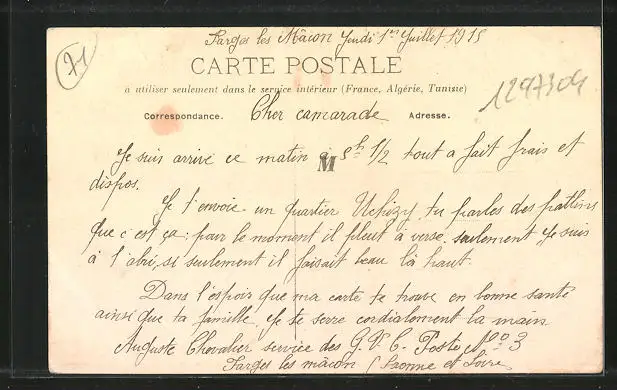 Farges les Mâcon Jeudi 1er Juillet 1915
71
CARTE POSTALE
1297304
a utiliser seulement dans le service intérieur (France, Algérie, Tunisie)
Correspondance. Cher camarade Adresse.
Je suis arrivé ce matin à 5h 1/2 tout a fait frais et
M
dispos.
Je t'envoie un quartier Uchizy, tu parles des
que c'est ça: pour le moment il pleut a verse seulement Je suis
à l'abri, si seulement il faisait beau là haut.
Dans l'espoir que ma carte te trouve en bonne santé
ainsi que ta famille. Je te serre cordialement la main
Auguste Chevalier service des G.V.C. Poste No 3
Farges les mâcon (Saonne et Loire